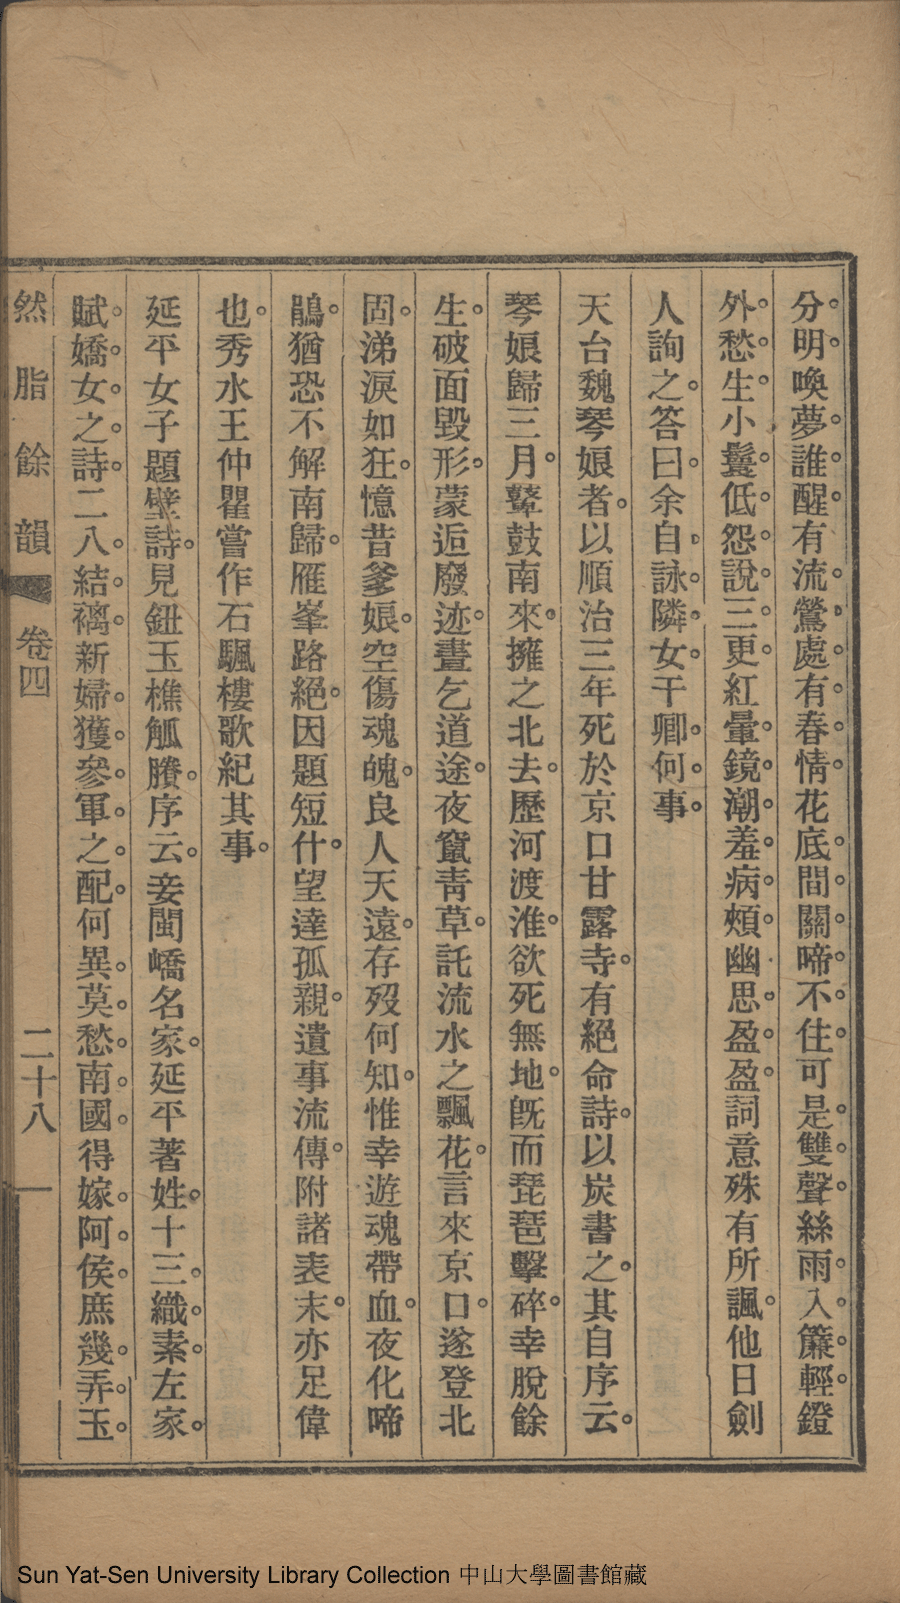 分。明。喚夢。誰。醒。有流。鶯。處。有。春。情。花底。間。關。啼。不。住。可是。雙。聲。絲雨。入。簾。輕。鐙
外。愁。生。小鬟。低。怨。說。三。更。紅暈。鏡。潮。羞。病。頰。幽思。盈。盈。詞意殊有所諷。他日劍
人詢之。答曰。余自。詠。隣。女。干卿。何。事。
天台魏琴娘者。以順治三年死於京口甘露寺。有絕命詩。以炭書之。其自序云。
琴娘歸三月。鼙鼓南來。擁之北去。歷河渡淮。欲死無地。既而琵琶擊碎。幸脫餘
生。破面毀形。蒙逅廢迹。晝乞道途。夜竄靑草。託流水之飄花。言來京口。遂登北
固。涕淚如狂。憶昔爹娘。空傷魂魄。良人天遠。存歿何知。惟幸遊魂帶血。夜化啼
鵑。猶恐不解南歸。雁峯路絕。因題短什。望達孤親。遺事流傳。附諸表末。亦足偉
也。秀水王仲瞿嘗作石颿樓歌紀其事。
延平女子題壁詩。見鈕玉樵觚賸。序云。妾閩嶠名家。延平著姓。十三。織。素。左家。
賦。嬌。女。之。詩。二八。結。褵。新婦。獲。參。軍。之。配。何異。莫。愁。南。國。得嫁。阿。侯。庶幾。弄。玉。
然脂餘韻 卷四 二十八
Sun Yat-Sen University Library Collection 中山大學圖書館藏